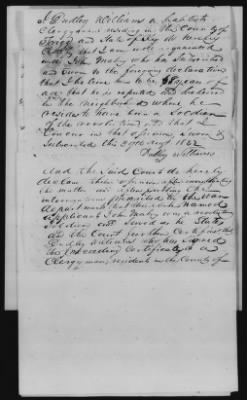 I Dudley Williams a baptist
Clergyman residing in the County of
Trigg and State of Ky do hereby
Certify that I am well acquainted
with John Mabry who has subscribed
and sworn to the foregoing declaration
that I believe him to be years of
age that he is reputed and believed
in the neighborhood where he
resides to have been a Soldier
of the revolution & that I
Concur in that opinion, Sworn &
Subscribed this day Augt 1832
Dudley Williams
And the said Court do hereby
declare their opinion after investigating
the matter and after putting the
interrogatories prescribed by the War
department that the above named
applicant John Mabry was a revolutionary
Soldier and Served as he States
and the Court further Certifies that
Dudley Williams who has signed
the preceding Certificate is a
Clergyman resident in the County of